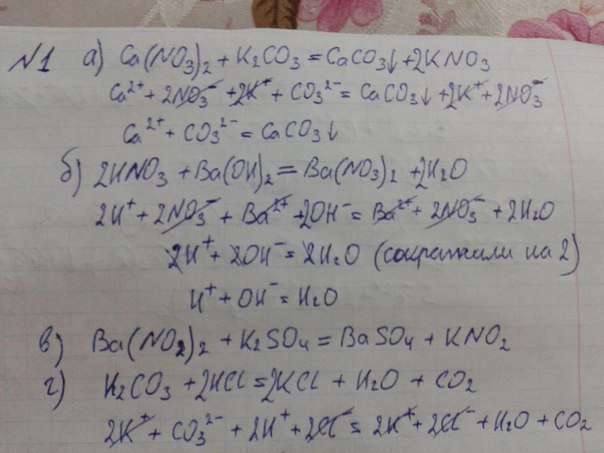 N1 а) Ca(NO₃)₂ + K₂CO₃ = CaCO₃↓ + 2KNO₃
Ca²⁺ + 2NO₃⁻ + 2K⁺ + CO₃²⁻ = CaCO₃↓ + 2K⁺ + 2NO₃⁻
Ca²⁺ + CO₃²⁻ = CaCO₃↓
б) 2HNO₃ + Ba(OH)₂ = Ba(NO₃)₂ + 2H₂O
2H⁺ + 2NO₃⁻ + Ba²⁺ + 2OH⁻ = Ba²⁺ + 2NO₃⁻ + 2H₂O
2H⁺ + 2OH⁻ = 2H₂O (сократили на 2)
H⁺ + OH⁻ = H₂O
в) Ba(NO₂)₂ + K₂SO₄ = BaSO₄ + KNO₂
г) K₂CO₃ + 2HCl = 2KCl + H₂O + CO₂
2K⁺ + CO₃²⁻ + 2H⁺ + 2Cl⁻ = 2K⁺ + 2Cl⁻ + H₂O + CO₂